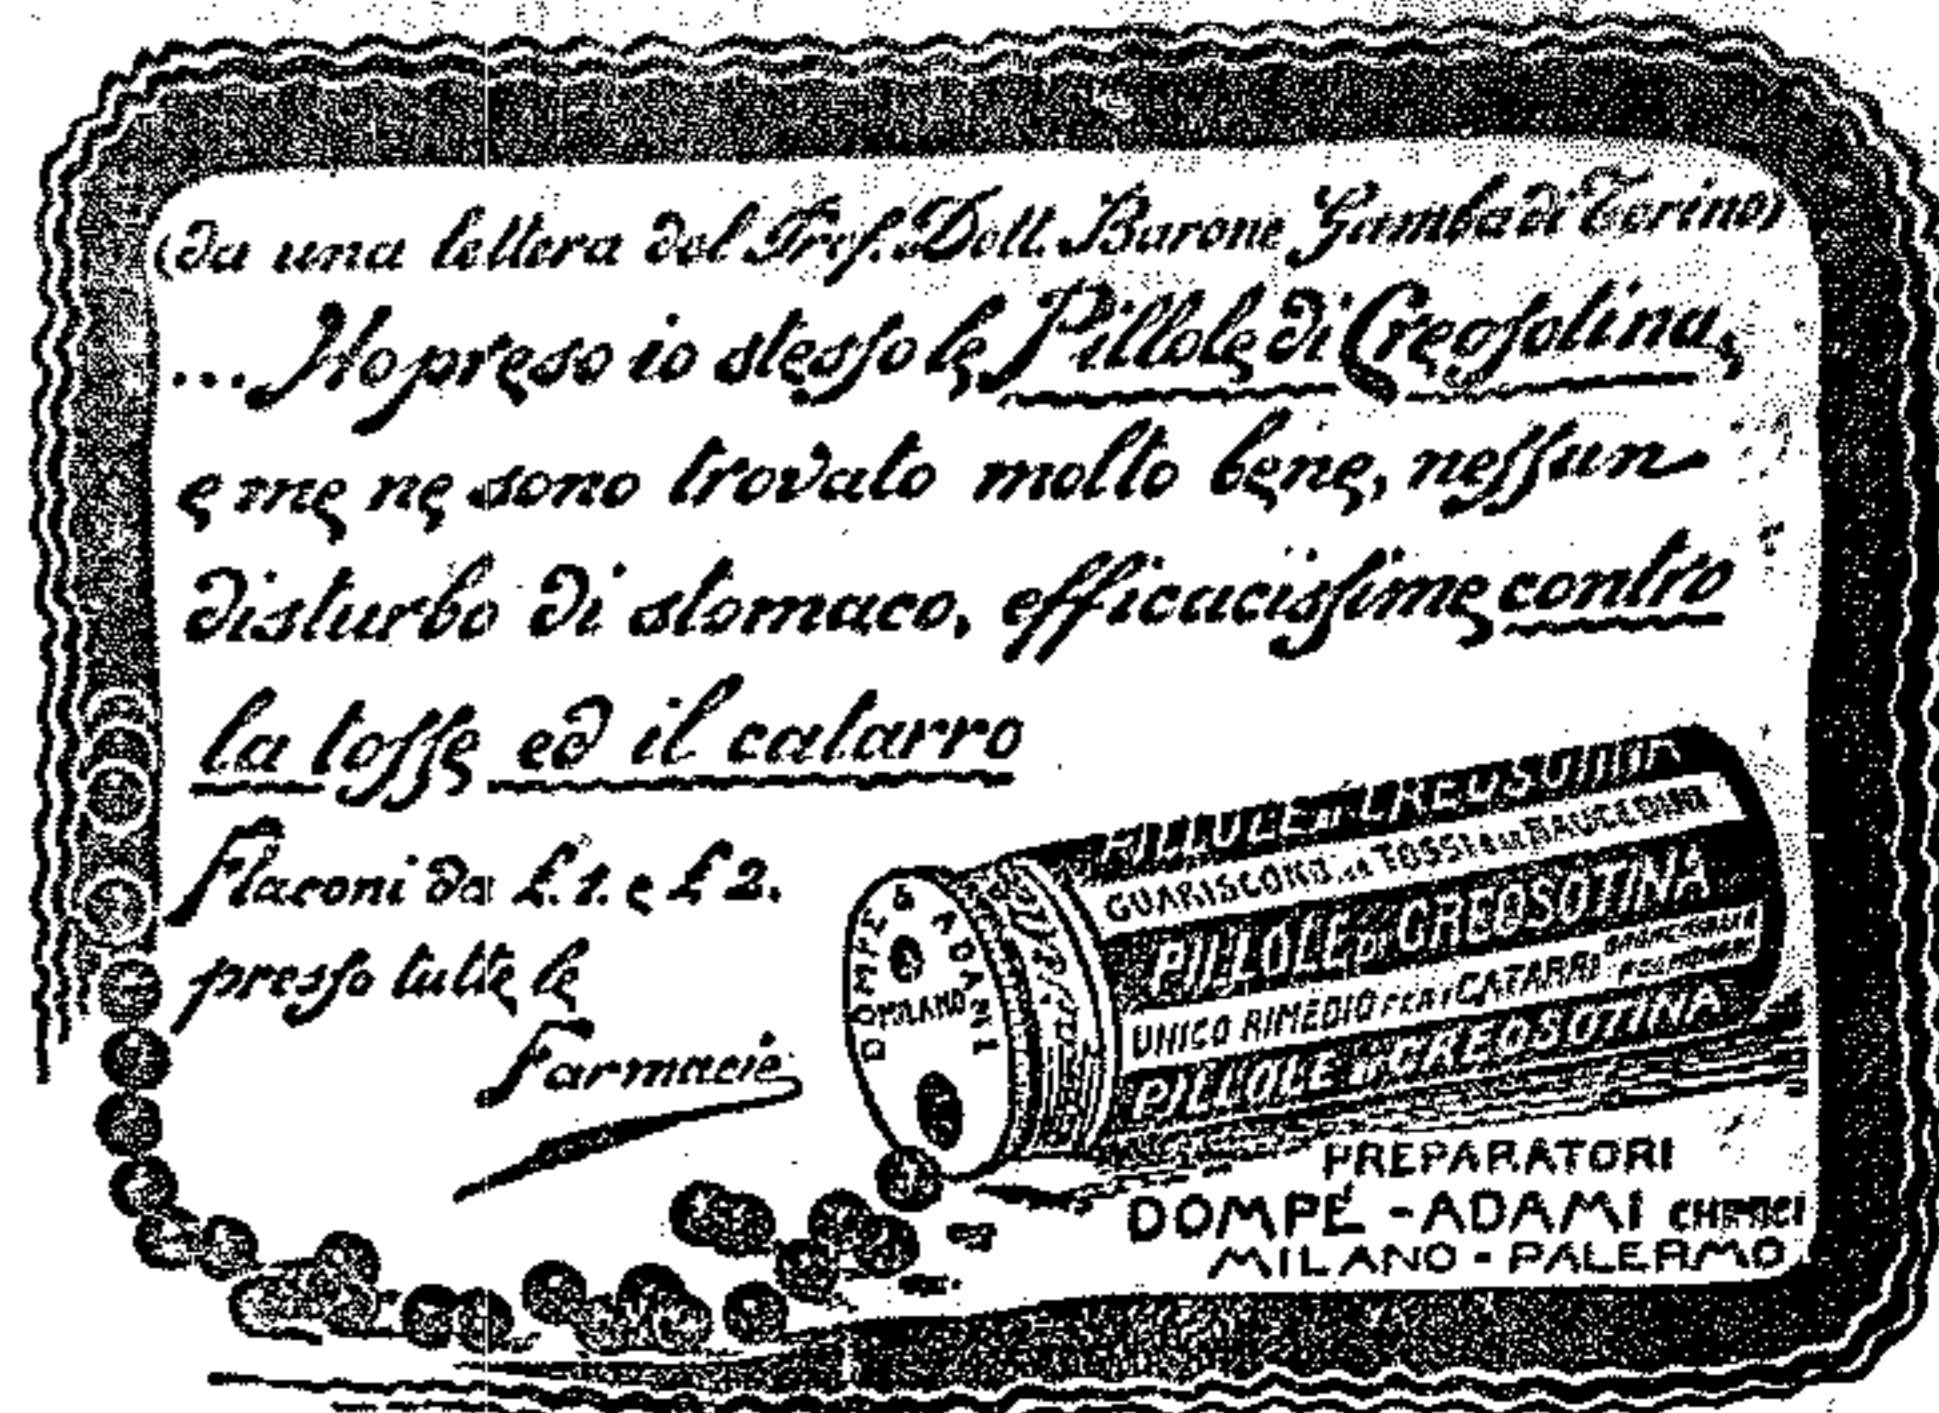 (da una lettera del Prof. Dott. Barone Gamba di Torino)
... Ho preso io stesso le Pillole di Creosotina,
e me ne sono trovato molto bene, nessun
disturbo di stomaco, efficacissime contro
la tosse ed il catarro
Flaconi da £.1. e £ 2.
presso tutte le
Farmacie
DOMPÉ & ADAMI
MILANO
PILLOLE DI CREOSOTINA
GUARISCONO LE TOSSI e le RAUCEDINI
PILLOLE DI CREOSOTINA
UNICO RIMEDIO PER I CATARRI
PILLOLE DI CREOSOTINA
PREPARATORI
DOMPÉ - ADAMI CHIMICI
MILANO - PALERMO